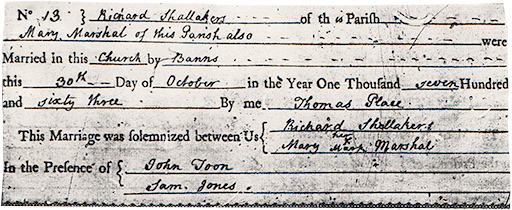 No 13 } Richard Shallakers of this Parish
Mary Marshal of this Parish also were
Married in this Church by Banns
this 30th Day of October in the Year One Thousand seven Hundred
and sixty three By me Thomas Place
This Marriage was solemnized between Us { Richard Shallakers
Mary her Mark Marshal
In the Presence of { John Toon
Sam. Jones.